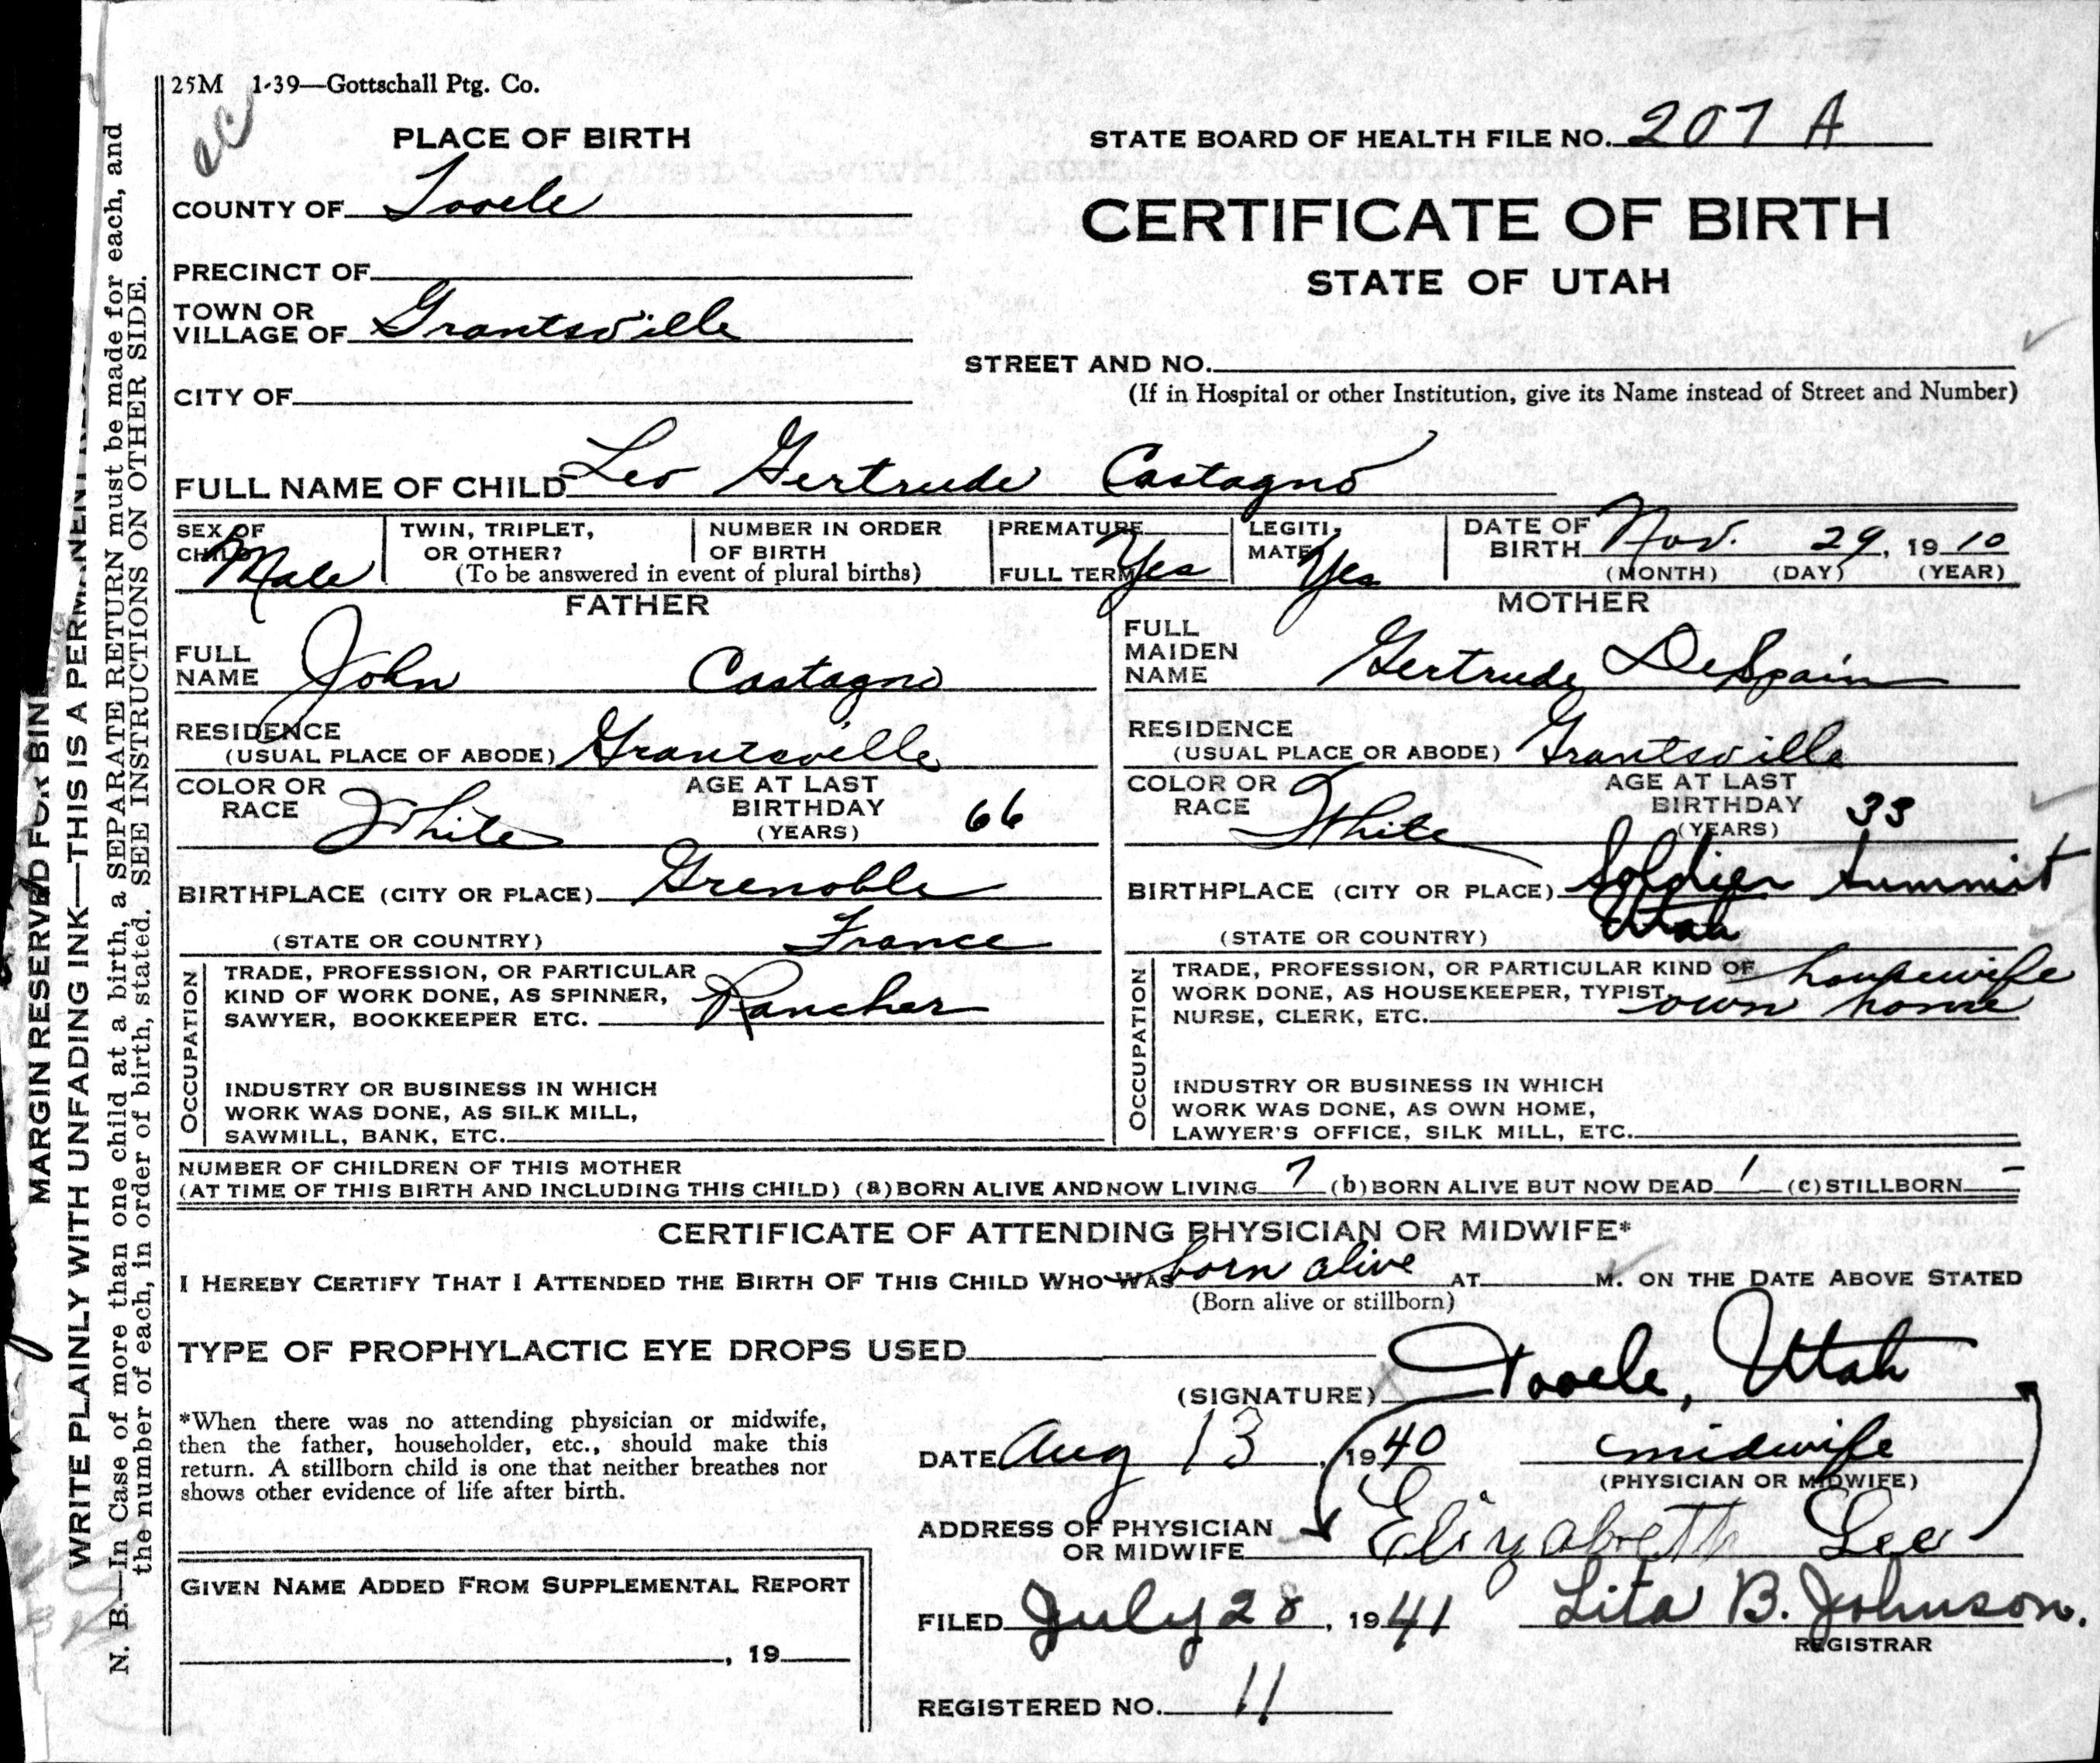 25M 1-39—Gottschall Ptg. Co.
PLACE OF BIRTH
STATE BOARD OF HEALTH FILE NO. 207 A
COUNTY OF Tooele
CERTIFICATE OF BIRTH
PRECINCT OF
STATE OF UTAH
TOWN OR
VILLAGE OF Grantsville
STREET AND NO.
CITY OF
(If in Hospital or other Institution, give its Name instead of Street and Number)
FULL NAME OF CHILD Leo Gertrude Castagno
SEX OF CHILD Male
TWIN, TRIPLET, OR OTHER?
NUMBER IN ORDER OF BIRTH
(To be answered in event of plural births)
PREMATURE
FULL TERM Yes
LEGITIMATE Yes
DATE OF BIRTH Nov. 29, 1910
(MONTH) (DAY) (YEAR)
FATHER
FULL NAME John Castagno
RESIDENCE
(USUAL PLACE OF ABODE) Grantsville
COLOR OR RACE White
AGE AT LAST BIRTHDAY (YEARS) 66
BIRTHPLACE (CITY OR PLACE) Grenoble
(STATE OR COUNTRY) France
OCCUPATION
TRADE, PROFESSION, OR PARTICULAR
KIND OF WORK DONE, AS SPINNER,
SAWYER, BOOKKEEPER ETC. Rancher
INDUSTRY OR BUSINESS IN WHICH
WORK WAS DONE, AS SILK MILL,
SAWMILL, BANK, ETC.
MOTHER
FULL MAIDEN NAME Gertrude DeSpain
RESIDENCE
(USUAL PLACE OR ABODE) Grantsville
COLOR OR RACE White
AGE AT LAST BIRTHDAY (YEARS) 33
BIRTHPLACE (CITY OR PLACE) Soldier Summit
(STATE OR COUNTRY) Utah
OCCUPATION
TRADE, PROFESSION, OR PARTICULAR KIND OF housewife
WORK DONE, AS HOUSEKEEPER, TYPIST, own home
NURSE, CLERK, ETC.
INDUSTRY OR BUSINESS IN WHICH
WORK WAS DONE, AS OWN HOME,
LAWYER'S OFFICE, SILK MILL, ETC.
NUMBER OF CHILDREN OF THIS MOTHER
(AT TIME OF THIS BIRTH AND INCLUDING THIS CHILD) (a) BORN ALIVE AND NOW LIVING 7 (b) BORN ALIVE BUT NOW DEAD 1 (c) STILLBORN –
CERTIFICATE OF ATTENDING PHYSICIAN OR MIDWIFE*
I HEREBY CERTIFY THAT I ATTENDED THE BIRTH OF THIS CHILD WHO WAS born alive AT M. ON THE DATE ABOVE STATED
(Born alive or stillborn)
TYPE OF PROPHYLACTIC EYE DROPS USED
(SIGNATURE) Tooele, Utah
*When there was no attending physician or midwife,
then the father, householder, etc., should make this
return. A stillborn child is one that neither breathes nor
shows other evidence of life after birth.
DATE Aug 13, 1940 midwife
(PHYSICIAN OR MIDWIFE)
ADDRESS OF PHYSICIAN
OR MIDWIFE Elizabeth Lee
GIVEN NAME ADDED FROM SUPPLEMENTAL REPORT
, 19
FILED July 28, 1941 Lita B. Johnson.
REGISTRAR
REGISTERED NO. 11
MARGIN RESERVED FOR BIN
WRITE PLAINLY WITH UNFADING INK—THIS IS A PERMANENT
N. B.—In Case of more than one child at a birth, a SEPARATE RETURN must be made for each, and
the number of each, in order of birth, stated. SEE INSTRUCTIONS ON OTHER SIDE.